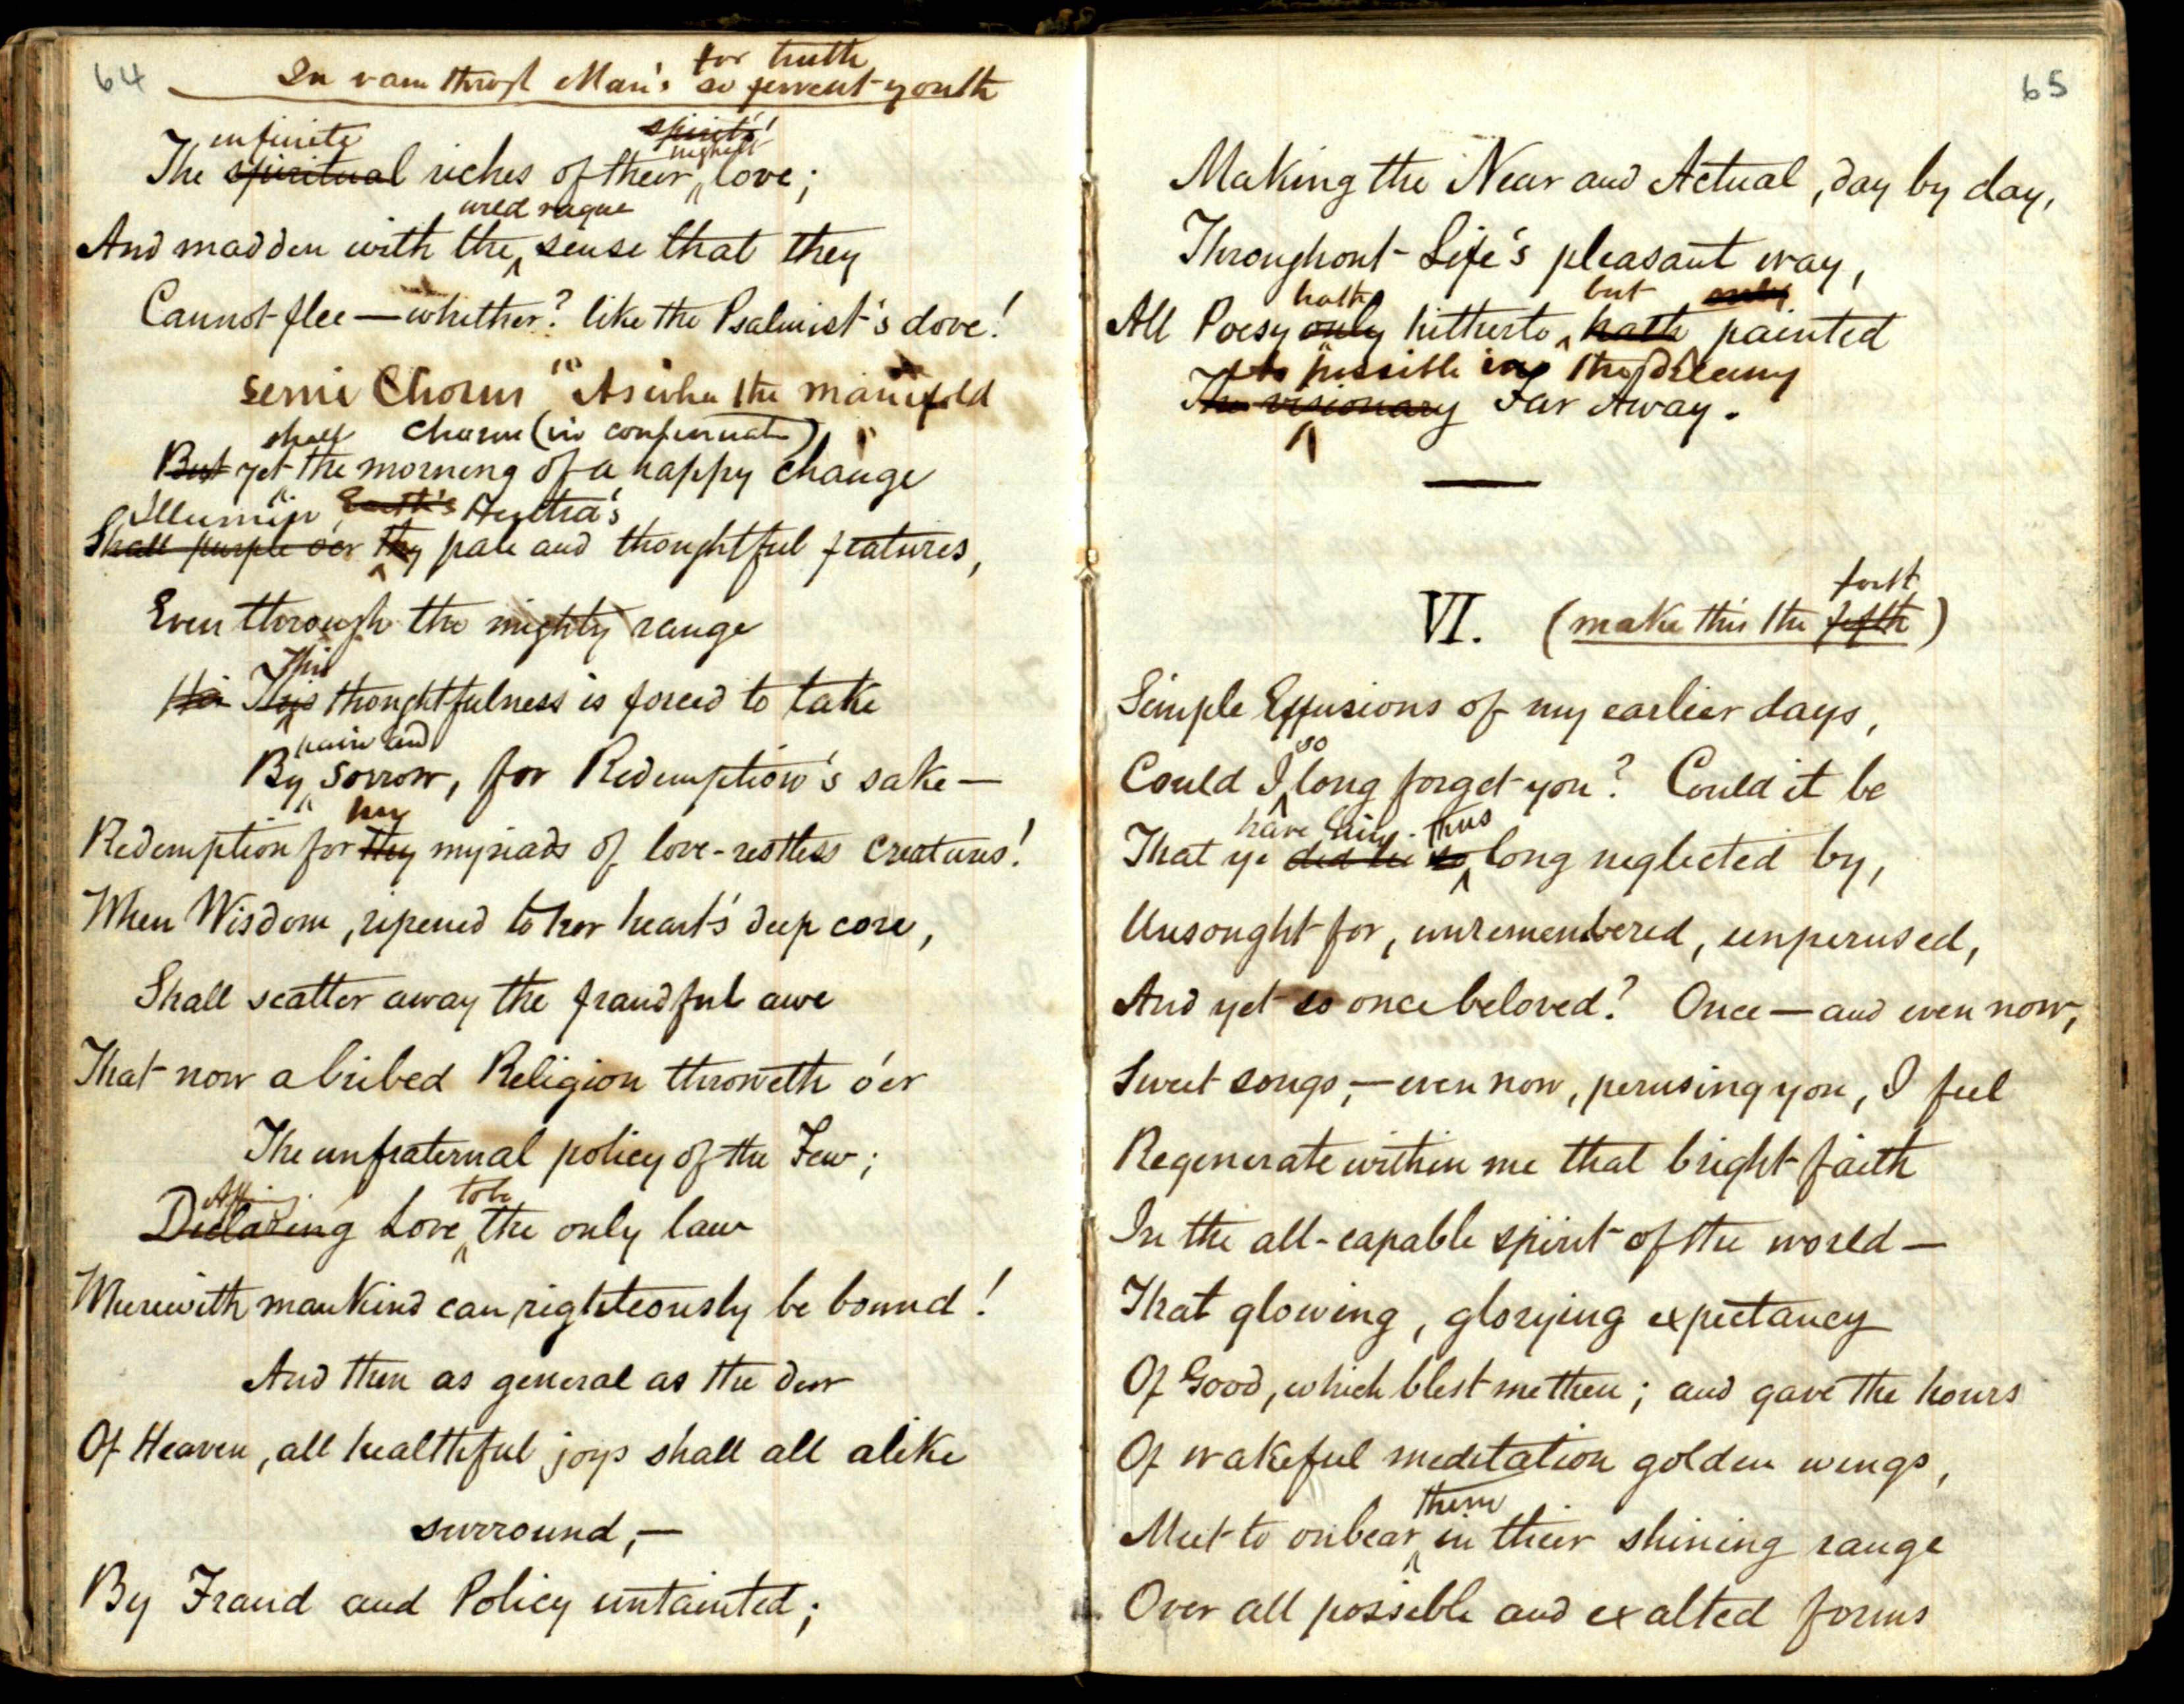 64
for truth
In vain throgh Man's so fervent youth
infinite spirit's!
highest
The spiritual riches of their love;
wild vague
And madden with the sense that they
Cannot flee — whither? like the Psalmist's dove!
Semi Chorus As when the manifold
shall Chorus (in continuat
But yet the morning of a happy change
Illumin Earth's Hertha's
Shall purple o'er thy pale and thoughtful features,
Even through the mighty range
This
thoughtfulness is forced to take
pain and
By sorrow, for Redemption's sake —
her
Redemption for thy myriads of love-restless creatures!
When Wisdom, ripened to her heart's deep core,
Shall scatter away the fraudful awe
That now a bribed Religion throweth o'er
The unfraternal policy of the Few;
to be
Declaring Love the only law
Wherewith mankind can righteously be bound!
And then as general as the dew
Of Heaven, all healthful joys shall all alike
surround, —
By Fraud and Policy untainted;
65
Making the Near and Actual, day by day,
Throughout Life's pleasant way,
hath but only
All Poesy only hitherto hath painted
As possible in the dreamy
The visionary Far Away.
VI. (make this the fifth)
Simple Effusions of my earlier days,
so
Could I long forget you? Could it be
have thus
That ye did lie so long neglected by,
Unsought for, unremembered, unperused,
And yet so once beloved? Once — and even now,
Sweet songs, — even now, perusing you, I feel
Regenerate within me that bright faith
In the all-capable spirit of the world —
That glowing, glorying expectancy
Of Good, which blest me then; and gave the hours
Of wakeful meditation golden wings,
them
Meet to onbear in their shining range
Over all possible and exalted forms